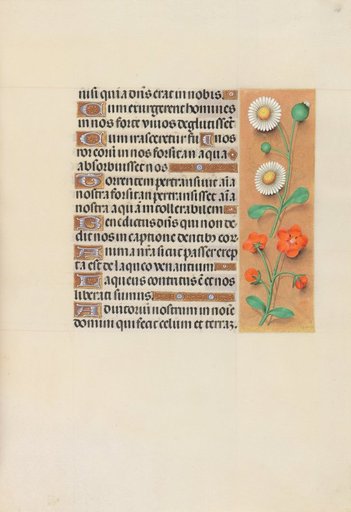 nisi quia dns erat in nobis.
Cum exurgerent homines
in nos forte viuos deglutisset
Cum irasceretur fu nos
ror eorū in nos forsitan aqua
absorbuisset nos
Torrentem pertransiuit aīa
nostra forsitan pertransisset aīa
nostra aquā intollerabilem
Benedictus dns qui non de
dit nos in captionē dentibꝰ eor
Anima nrā sicut passer erep
ta est de laqueo venantium
Laqueus contritus ē et nos
liberati sumus
Adiutoriū nostrum in noīe
domini qui fecit celum et terrā